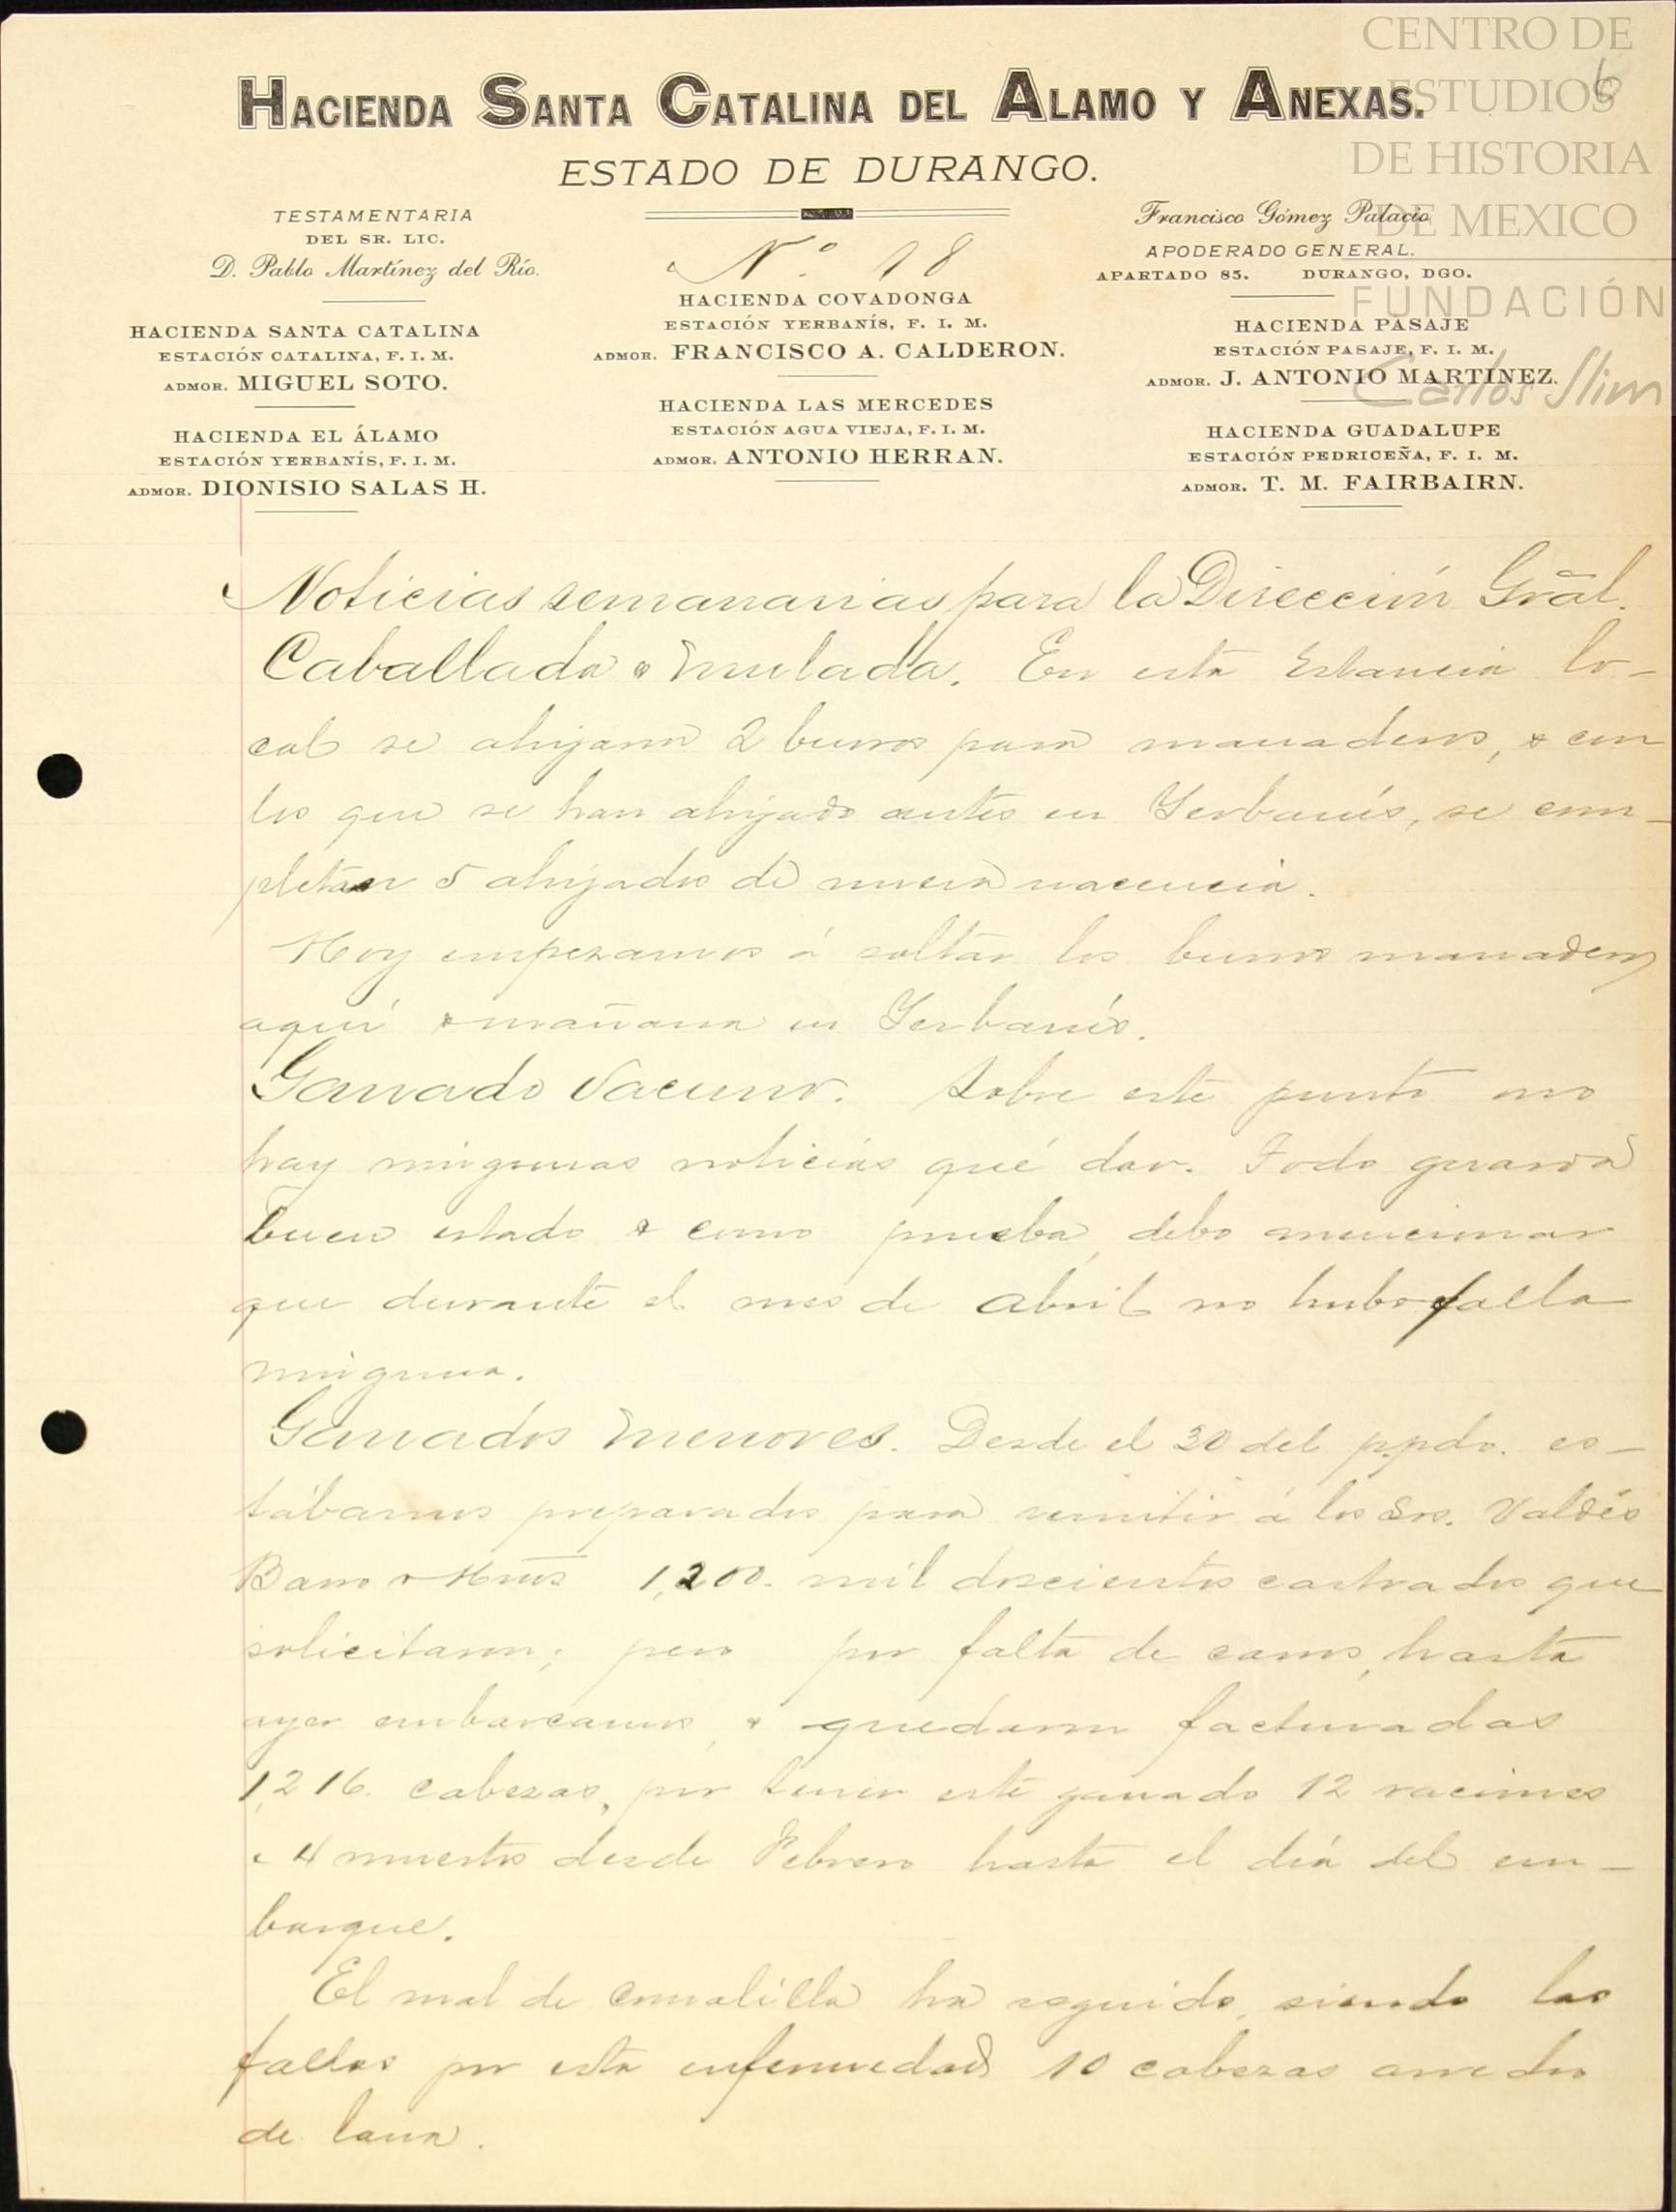 CENTRO DE
ESTUDIOS
DE HISTORIA
DE MEXICO
FUNDACIÓN
Carlos Slim
6
HACIENDA SANTA CATALINA DEL ALAMO Y ANEXAS.
ESTADO DE DURANGO.
TESTAMENTARIA
DEL SR. LIC.
D. Pablo Martínez del Río.
HACIENDA SANTA CATALINA
ESTACIÓN CATALINA, F. I. M.
ADMOR. MIGUEL SOTO.
HACIENDA EL ÁLAMO
ESTACIÓN YERBANÍS, F. I. M.
ADMOR. DIONISIO SALAS H.
Nº 18
HACIENDA COVADONGA
ESTACIÓN YERBANÍS, F. I. M.
ADMOR. FRANCISCO A. CALDERON.
HACIENDA LAS MERCEDES
ESTACIÓN AGUA VIEJA, F. I. M.
ADMOR. ANTONIO HERRAN.
Francisco Gómez Palacio
APODERADO GENERAL.
APARTADO 85. DURANGO, DGO.
HACIENDA PASAJE
ESTACIÓN PASAJE, F. I. M.
ADMOR. J. ANTONIO MARTÍNEZ.
HACIENDA GUADALUPE
ESTACIÓN PEDRICEÑA, F. I. M.
ADMOR. T. M. FAIRBAIRN.
Noticias semanarias para la Dirección Grãl.
Caballada y mulada. En esta Estancia lo-
cal se ahijaron 2 burros para manaderos, y con
los que se han ahijado antes en Yerbanís, se com-
pletan 5 ahijados de nueva nacencia.
Hoy empezamos á soltar los burros manaderos
aquí y mañana en Yerbanís.
Ganado Vacuno. Sobre este punto no
hay ningunas noticias qué dar. Todo guarda
buen estado y como prueba, debo mencionar
que durante el mes de abril no hubo falla
ninguna.
Ganados menores. Desde el 30 del p.pdo. es-
tábamos preparados para remitir á los Srs. Valdés
Barro y Hnos 1,200. mil doscientos castrados que
solicitaron; pero por falta de carros, hasta
ayer embarcamos, y quedaron facturadas
1,216. cabezas, por tener este ganado 12
y 4 muertos desde Febrero hasta el día del em-
barque.
El mal de ha seguido, siendo las
fallas por esta enfermedad 10 cabezas
de lana.